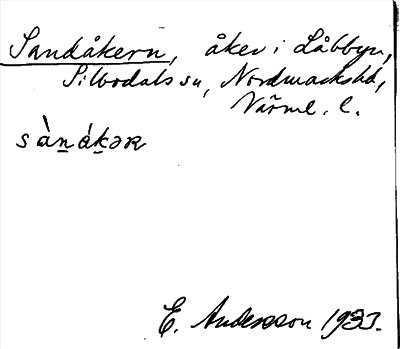 Sandåkern, åker i Låbbyn,
Silbodals sn, Nordmarks hd,
Värml. l.
sàn̲ák̲ər
E. Andersson 1933.